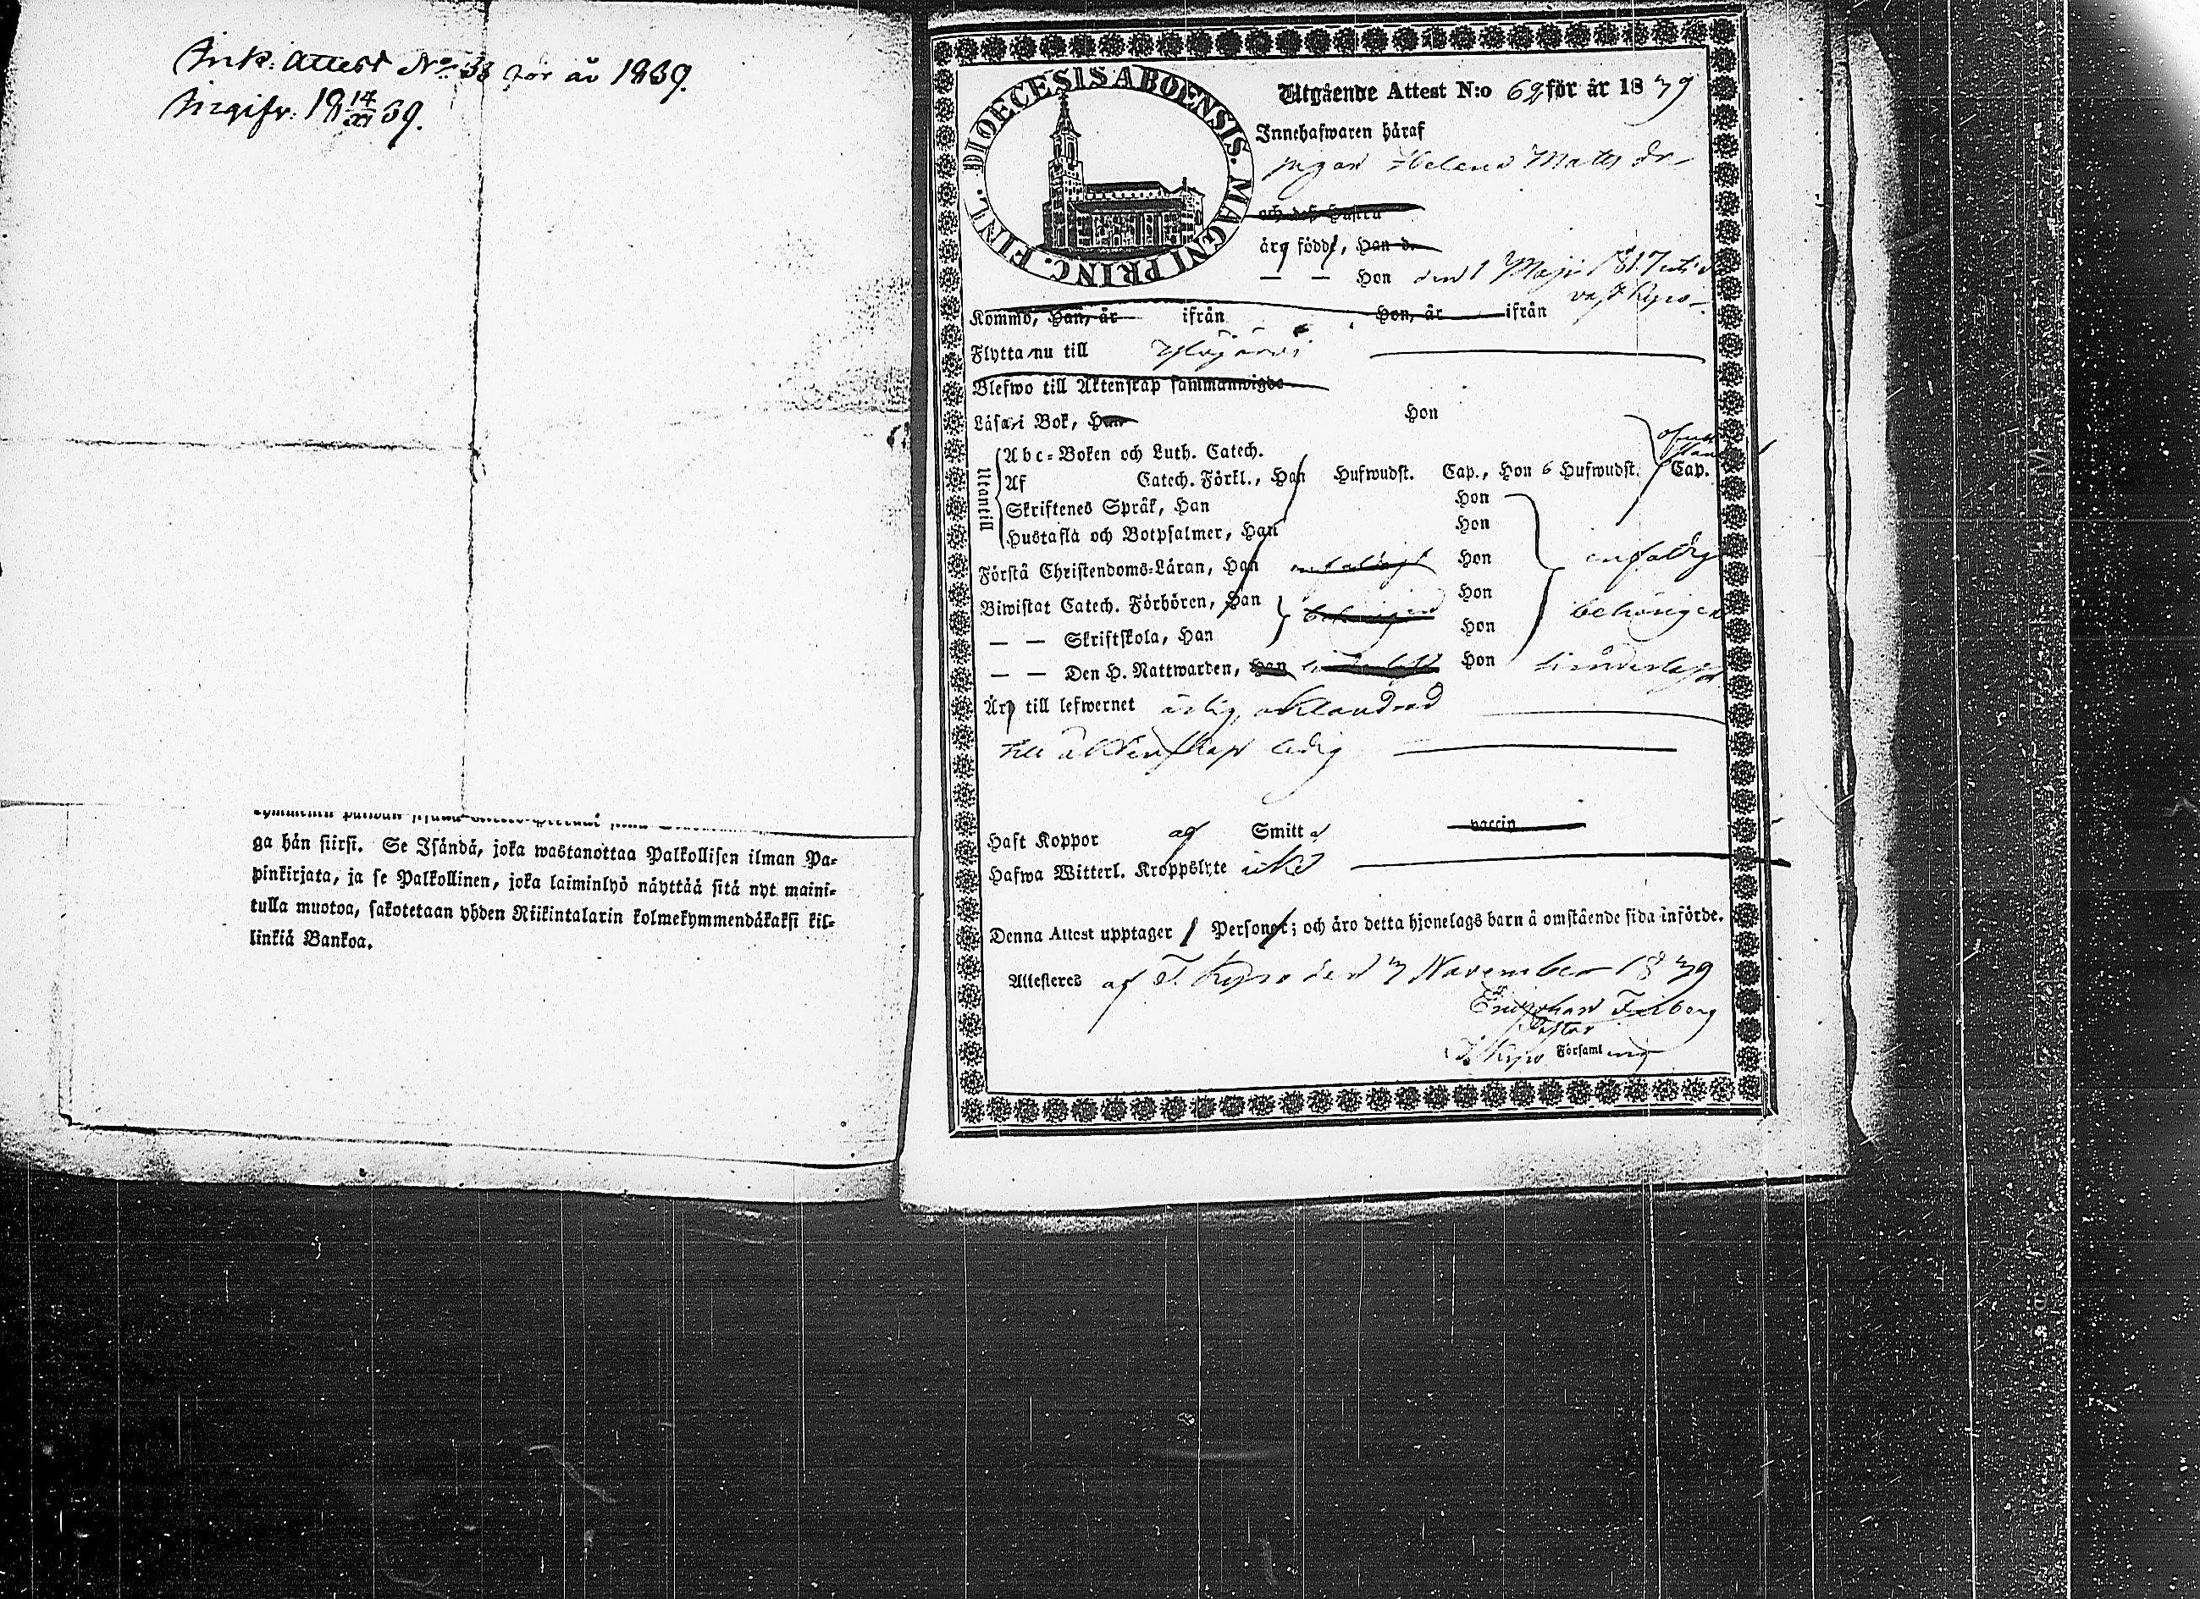 Ink: Attest No 33 för år 1839.
Uppgifv: 18 14/XI 39.
ga hån siirsi. Se Isåndå, joka wastanottaa Palkollisen ilman Pa-
pinkirjata, ja se Palkollinen, joka laiminlyö näyttää sitä nyt maini-
tulla muotoa, sakotetaan yhden Riikintalarin kolmekymmendäkaksi kil-
linkiä Bankoa.
DIOECESIS ABOENSIS. MAGNI PRINC. FINL.
Utgående Attest N:o 62 för år 1839
Innehafwaren häraf
pigan Helena Mats dr
och deß Hustru
äro födde, Han d.
— — Hon den 1 Maji 1817 uti
Kyro
Kommo, Han, år ifrån Hon, år ifrån
Flytta nu till Ylöjärvi
Blefwo till Äktenskap sammanwigde
Läsa i Bok, Han Hon
Utantill
Abc-Boken och Luth. Catech.
Af Catech. Förkl., Han Hufwudst. Cap., Hon 6 Hufwudst. Cap.
Skriftenes Språk, Han Hon
Hustafla och Botpsalmer, Han Hon
Förstå Christendoms-Läran, Han Hon enfaldigt
Biwistat Catech. Förhören, Han Hon behörigen
— — Skriftskola, Han Hon
— — Den H. Nattwarden, Han Hon
Äro till lefwernet ärlig, oklandrad
till äktenskap ledig
Haft Koppor af Smitta vaccin
Hafwa Witterl. Kroppslyte icke
Denna Attest upptager 1 Personer; och äro detta hjonelags barn å omstående sida införde.
Attesteres af T. Kyro den 7 November 1839
Pastor
T. Kyro Församling